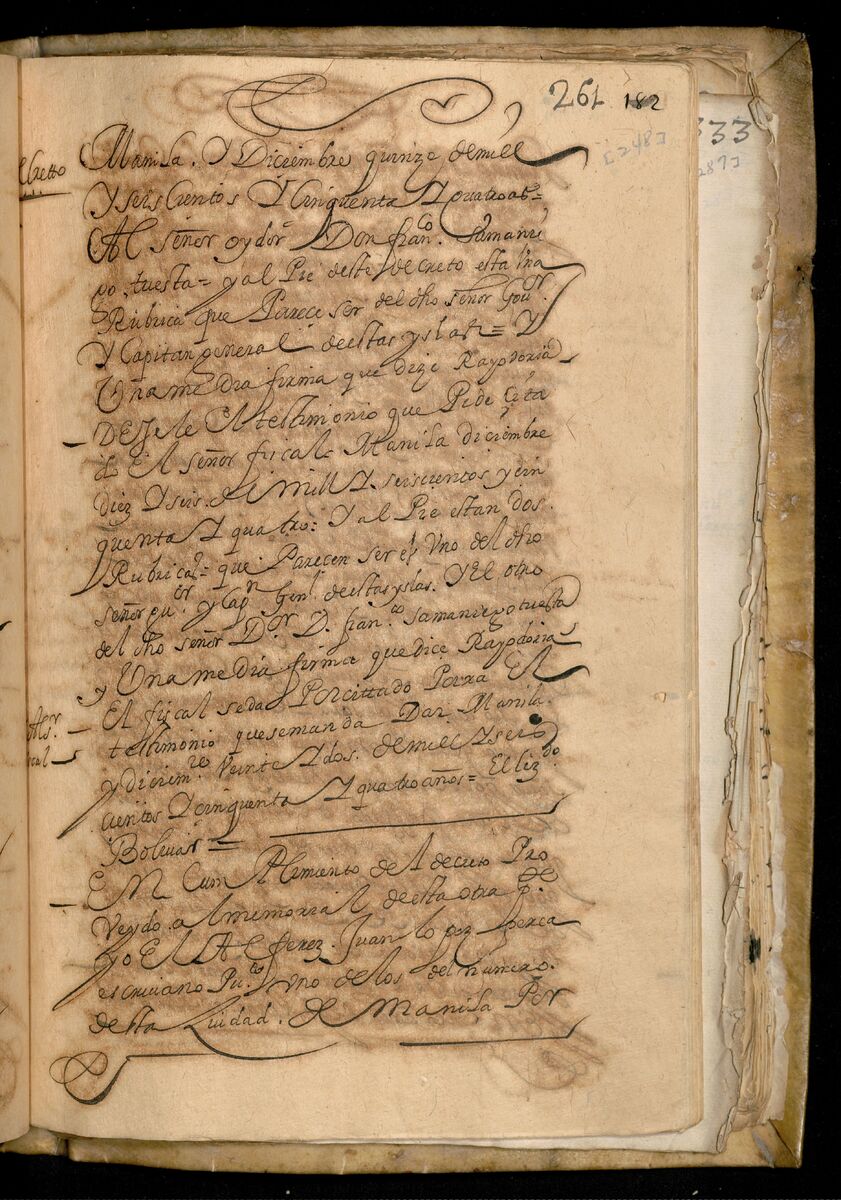 261 182
[248]
333
287]
cretto
Manila. Y Diciembre quinze demill
Y seis Cientos Y Cinquenta Y quatro as=
Al señor oydor Don franco. Samanie
go. tuesta= y al Pie deste decreto esta Una
Rubrica que Parece ser del dho señor Gour.
Y Capitan general deestas yslas= Y
Una media firma que dize Rayo doria
DEsele El testimonio que Pide Cita
do El señor fiscal. Manila diciembre
diez Y seis. de mill Y. seiscientos y cin
quenta Y quatro= Y al Pie estan dos.
Rubricas= que. Parecen ser el Uno del dho
señor gour. y Capn Genl. deestas yslas. Y El otro
del dho señor Dor. D. franco. samaniego tuesta
y Una media firma que dice Rayo doria
El fiscal seda Porcittado Parra El
testimonio quesemanda Dar Manila.
y diciemre. Veinte Y dos. demill Y seis
cientos Y cinquenta Y quatro años= El lizdo.
Bolivar=
EN Cumplimiento del decreto Pro
Veydo. al memorial deesta otra pte.
yo El Alferez. Juan lopez perea
escriuano Puco. Uno de los del numero.
desta Ciudad. de Manila Por